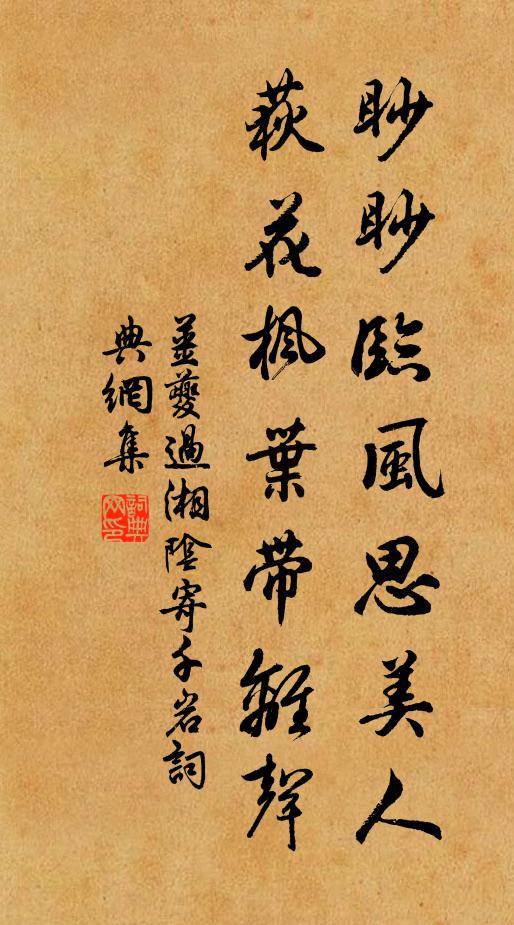 眇眇臨風思美人
荻花楓葉帶離聲
姜夔過湘陰寄千岩詞
典網集
詞典
网印